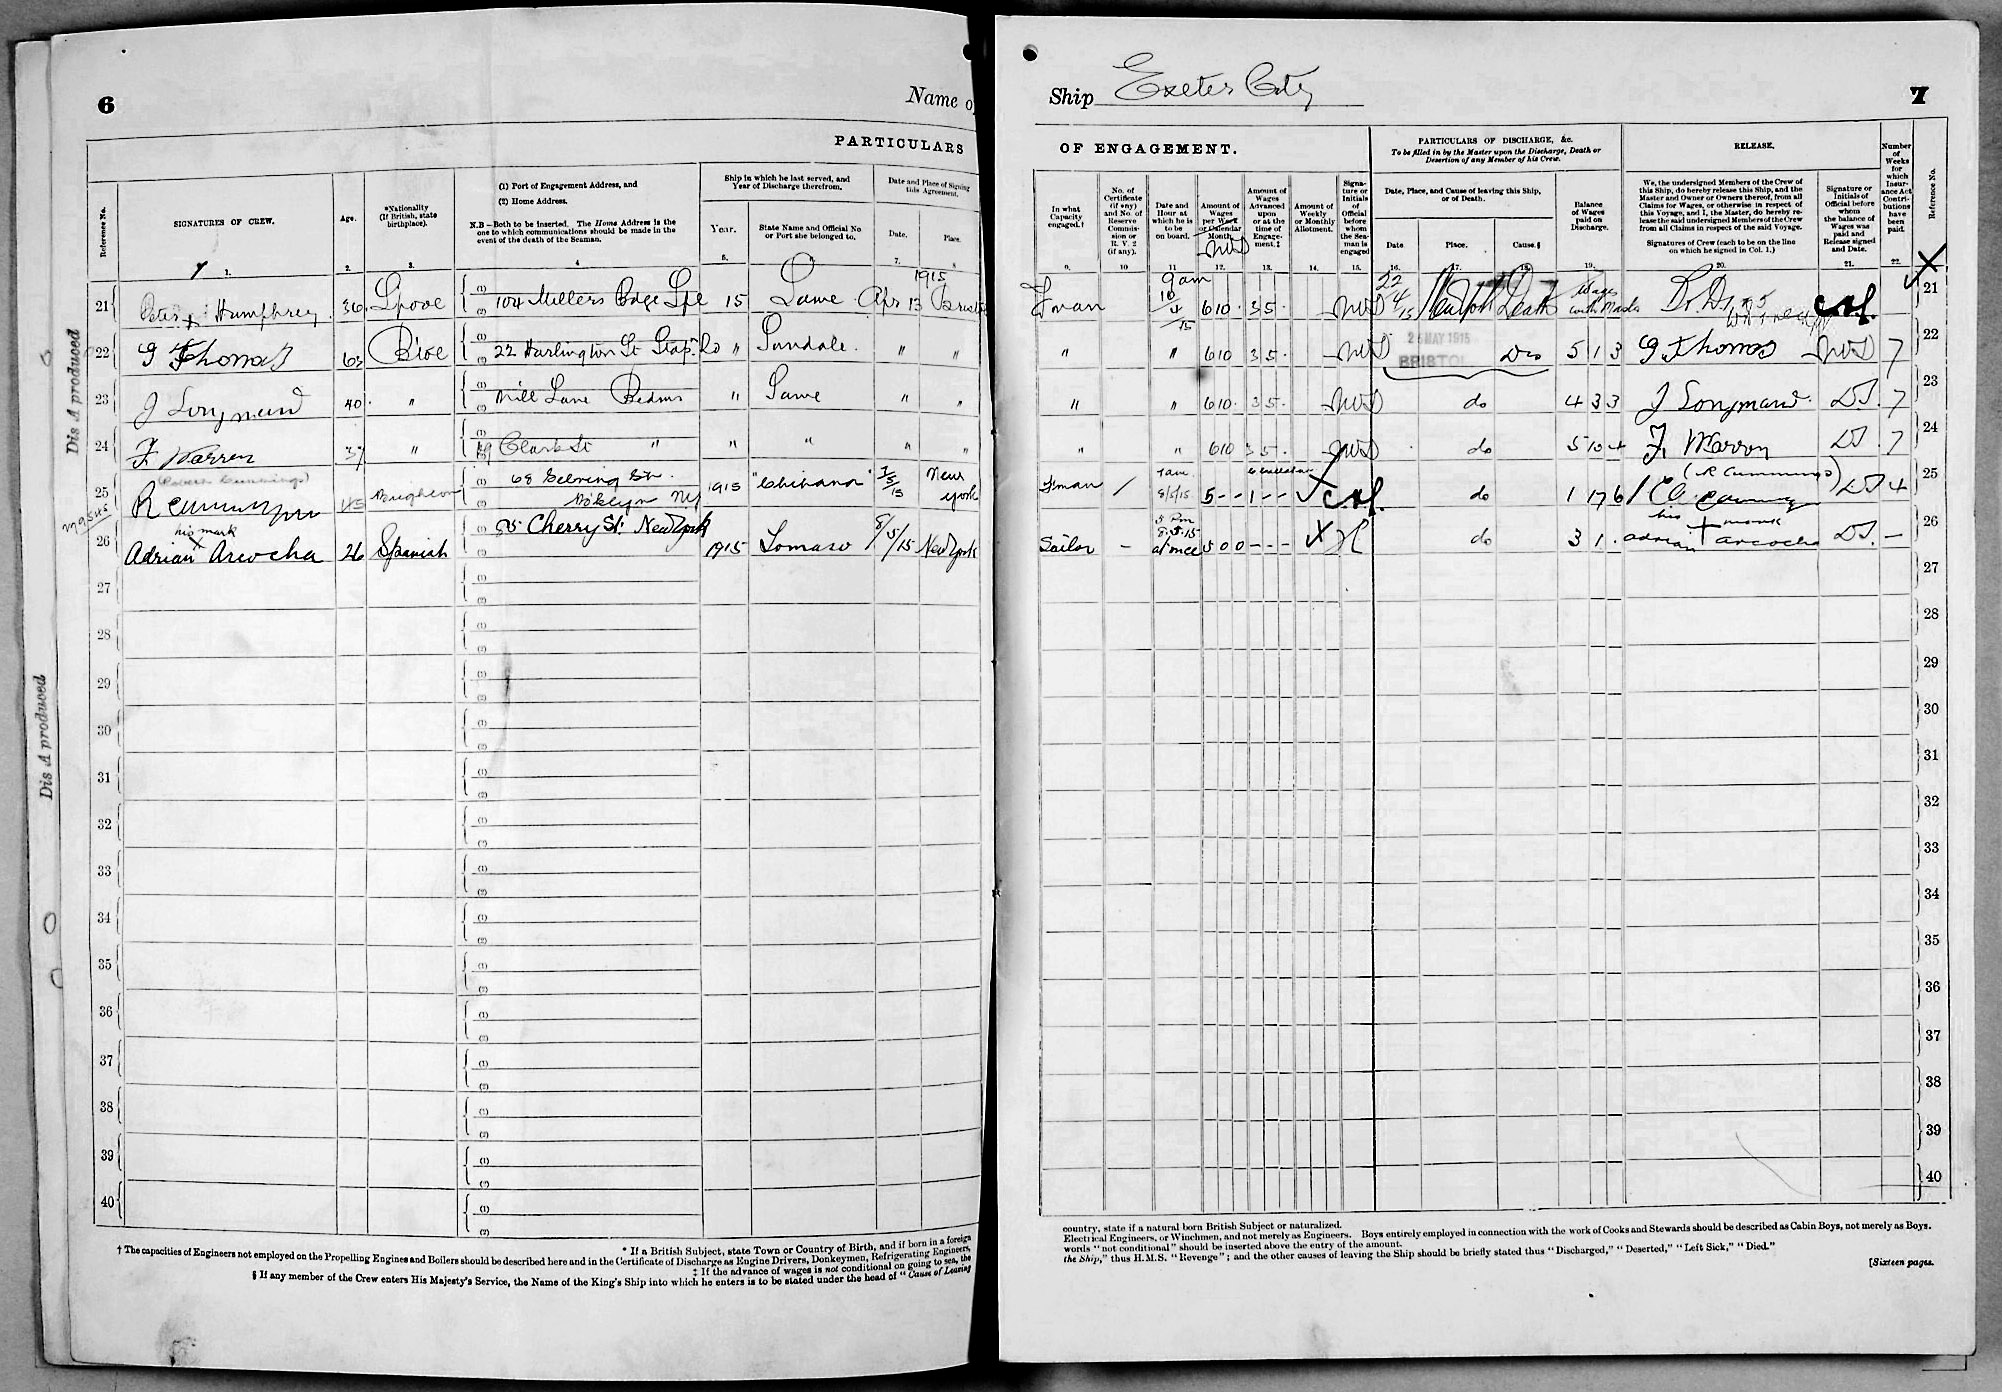 6
Name o
PARTICULARS
Reference No.
SIGNATURES OF CREW.
Age.
*Nationality
(If British, state
birthplace).
(1) Port of Engagement Address, and
(2) Home Address.
N.B—Both to be inserted. The Home Address is the
one to which communications should be made in the
event of the death of the Seaman.
Ship in which he last served, and
Year of Discharge therefrom.
Year.
State Name and Official No
or Port she belonged to.
Date and Place of Signing
this Agreement.
Date.
Place.
1.
2.
3.
4
5.
7.
8
1915
21 Peter x Humphrey 36 Lpool (1) (2) 104 Millers Bdge Lpl 15 Same Apr 13 Bristol
22 G Thomas 63 (1) (2) 22 Harlington St " " "
23 J Longman 40 " (1) (2) Mill Lane Bedms " Same " "
24 F Warren 37 " (1) (2) 19 Clark St " " " " "
25 R Cummings 45 (1) (2) 68 St. Bklyn NY 1915 7/5/15 New York
26 his mark
Adrian Arocha 26 Spanish 25 Cherry St. New York 1915 8/5/15 New York
27 (1) (2)
28 (1) (2)
29 (1) (2)
30 (1) (2)
31 (1) (2)
32 (1) (2)
33 (1) (2)
34 (1) (2)
35 (1) (2)
36 (1) (2)
37 (1) (2)
38 (1) (2)
39 (1) (2)
40 (1) (2)
* If a British Subject, state Town or Country of Birth, and if born in a foreign
† The capacities of Engineers not employed on the Propelling Engines and Boilers should be described here and in the Certificate of Discharge as Engine Drivers, Donkeymen, Refrigerating Engineers,
‡ If the advance of wages is not conditional on going to sea, the
§ If any member of the Crew enters His Majesty's Service, the Name of the King's Ship into which he enters is to be stated under the head of "Cause of Leaving
Dis A produced
Dis A produced
Ship Exeter City
7
OF ENGAGEMENT.
PARTICULARS OF DISCHARGE, &c.
To be filled in by the Master upon the Discharge, Death or
Desertion of any Member of his Crew.
RELEASE.
Number
of
Weeks
for
which
Insur-
ance Act
Contri-
butions
have
been
paid.
Reference No.
In what
Capacity
engaged.†
No. of
Certificate
(if any)
and No. of
Reserve
Commis-
sion or
R. V. 2
(if any).
Date and
Hour at
which he is
to be
on board.
Amount of
Wages
per Week
or Calendar
Month.
Amount of
Wages
Advanced
upon
or at the
time of
Engage-
ment.‡
Amount of
Weekly
or Monthly
Allotment.
Signa-
ture or
Initials
of
Official
before
whom
the Sea-
man is
engaged
Date, Place, and Cause of leaving this Ship,
or of Death.
Date
Place.
Cause.§
Balance
of Wages
paid on
Discharge.
We, the undersigned Members of the Crew of
this Ship, do hereby release this Ship, and the
Master and Owner or Owners thereof, from all
Claims for Wages, or otherwise in respect of
this Voyage, and I, the Master, do hereby re-
lease the said undersigned Members of the Crew
from all Claims in respect of the said Voyage.
Signatures of Crew (each to be on the line
on which he signed in Col. 1.)
Signature or
Initials of
Official before
whom
the balance of
Wages was
paid and
Release signed
and Date.
9.
10
11
12.
13.
14.
15.
16.
17.
18.
19.
20.
21.
22.
F'man 9 am 10/4/15 6 10 3 5 22/4/15 New York Death Wages with Master 21
" " 6 10 3 5 26 MAY 1915 BRISTOL Dis 5 1 3 G Thomas 7 22
" " 6 10 3 5 do 4 3 3 J Longman D.J. 7 23
" " 6 10 3 5 do 5 10 4 F. Warren D.J. 7 24
F'man / 7 am 8/5/15 5 - - 1 - - X do 1 17 6 (R Cummings) D.J. 4 25
Sailor - 8.5.15 at once 5 0 0 - - - X do 3 1 . his mark
Adrian + Arocha D.J. - 26
27
28
29
30
31
32
33
34
35
36
37
38
39
40
country, state if a natural born British Subject or naturalized.
Electrical Engineers, or Winchmen, and not merely as Engineers. Boys entirely employed in connection with the work of Cooks and Stewards should be described as Cabin Boys, not merely as Boys.
words "not conditional" should be inserted above the entry of the amount.
the Ship," thus H.M.S. "Revenge"; and the other causes of leaving the Ship should be briefly stated thus "Discharged," "Deserted," "Left Sick," "Died."
[Sixteen pages.